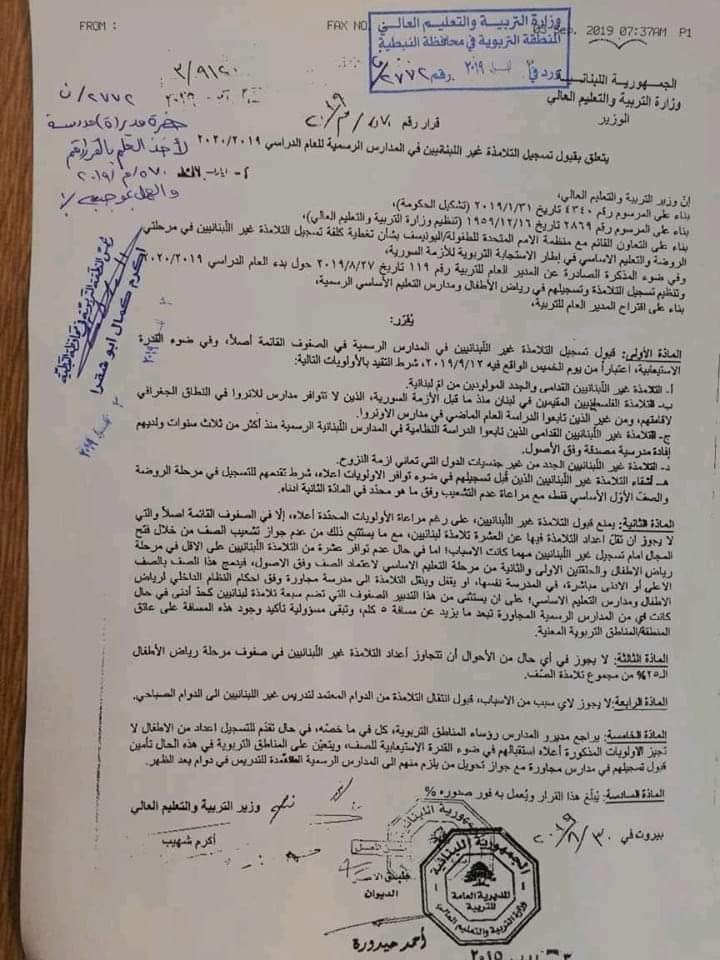 FROM :
FAX NO.
05 Sep. 2019 07:37AM P1
وزارة التربية والتعليم العالي
المنطقة التربوية في محافظة النبطية
ورد في ٢٠١٩ رقم ٢٧٧٢/ن
٣/٩١٢٠
٢٧٧٢/ن
حضرة مدراء المدرسة
لأخذ العلم بالقرار رقم
٥٧٠/م/٢٠١٩
والعمل بموجبه
الجمهورية اللبنانية
وزارة التربية والتعليم العالي
الوزير
قرار رقم ٥٧٠/م/٢٠١٩
يتعلق بقبول تسجيل التلامذة غير اللبنانيين في المدارس الرسمية للعام الدراسي ٢٠٢٠/٢٠١٩
إنّ وزير التربية والتعليم العالي،
بناء على المرسوم رقم ٤٣٤٠ تاريخ ٢٠١٩/١/٣١ (تشكيل الحكومة)،
بناء على المرسوم رقم ٢٨٦٩ تاريخ ١٩٥٩/١٢/١٦ (تنظيم وزارة التربية والتعليم العالي)،
بناء على التعاون القائم مع منظمة الامم المتحدة للطفولة/اليونيسف بشأن تغطية كلفة تسجيل التلامذة غير اللّبنانيين في مرحلتي
الروضة والتعليم الاساسي في إطار الاستجابة التربوية للأزمة السورية،
وفي ضوء المذكرة الصادرة عن المدير العام للتربية رقم ١١٩ تاريخ ٢٠١٩/٨/٢٧ حول بدء العام الدراسي ٢٠٢٠/٢٠١٩
وتنظيم تسجيل التلامذة وتسجيلهم في رياض الأطفال ومدارس التعليم الأساسي الرسمية،
بناء على اقتراح المدير العام للتربية،
يُقرّر:
المادة الأولى: قبول تسجيل التلامذة غير اللّبنانيين في المدارس الرسمية في الصفوف القائمة أصلاً، وفي ضوء القدرة
الاستيعابية، اعتباراً من يوم الخميس الواقع فيه ٢٠١٩/٩/١٢، شرط التقيد بالأولويات التالية:
أ- التلامذة غير اللّبنانيين القدامى والجدد المولودين من ام لبنانية.
ب- التلامذة الفلسطينيين المقيمين في لبنان منذ ما قبل الأزمة السورية، الذين لا تتوافر مدارس للانروا في النطاق الجغرافي
لاقامتهم، ومن غير الذين تابعوا الدراسة العام الماضي في مدارس الاونروا.
ج- التلامذة غير اللّبنانيين القدامى الذين تابعوا الدراسة النظامية في المدارس اللّبنانية الرسمية منذ أكثر من ثلاث سنوات ولديهم
إفادة مدرسية مصدقة وفق الأصول.
د- التلامذة غير اللّبنانيين الجدد من غير جنسيات الدول التي تعاني ازمة النزوح.
هـ- أشقاء التلامذة غير اللّبنانيين الذين قبل تسجيلهم في ضوء توافر الاولويات اعلاه، شرط تقدمهم للتسجيل في مرحلة الروضة
والصف الأوّل الأساسي فقط، مع مراعاة عدم التشعيب وفق ما هو محدّد في المادّة الثانية ادناه.
المادة الثانية: يمنع قبول التلامذة غير اللّبنانيين، على رغم مراعاة الأولويات المحدّدة أعلاه، إلّا في الصفوف القائمة اصلاً والتي
لا يجوز ان تقل اعداد التلامذة فيها عن العشرة تلامذة لبنانيين، مع ما يستتبع ذلك من عدم جواز تشعيب الصف من خلال فتح
المجال امام تسجيل غير اللبنانيين مهما كانت الاسباب؛ اما في حال عدم توافر عشرة من التلامذة اللبنانيين على الاقل في مرحلة
رياض الاطفال والحلقتين الاولى والثانية من مرحلة التعليم الاساسي لاعتماد الصف وفق الاصول، فيدمج هذا الصف بالصف
الاعلى أو الادنى مباشرة، في المدرسة نفسها، او يقفل وينقل التلامذة الى مدرسة مجاورة وفق احكام النظام الداخلي لرياض
الاطفال ومدارس التعليم الاساسي؛ على ان يستثنى من هذا التدبير الصفوف التي تضم سبعة تلامذة لبنانيين كحدّ أدنى في حال
كانت اي من المدارس الرسمية المجاورة تبعد ما يزيد عن مسافة ٥ كلم، وتبقى مسؤولية تأكيد وجود هذه المسافة على عاتق
المنطقة/المناطق التربوية المعنية.
المادة الثالثة: لا يجوز في أي حال من الأحوال أن تتجاوز أعداد التلامذة غير اللّبنانيين في صفوف مرحلة رياض الأطفال
الـ٢٥% من مجموع تلامذة الصّف.
المادة الرابعة: لا يجوز لاي سبب من الاسباب، قبول انتقال التلامذة من الدوام المعتمد لتدريس غير اللبنانيين الى الدوام الصباحي.
المادة الخامسة: يراجع مديرو المدارس رؤساء المناطق التربوية، كل في ما خصّه، في حال تقدّم للتسجيل اعداد من الاطفال لا
تجيز الاولويات المذكورة أعلاه استقبالهم في ضوء القدرة الاستيعابية للصف، ويتعيّن على المناطق التربوية في هذه الحال تأمين
قبول تسجيلهم في مدارس مجاورة مع جواز تحويل من يلزم منهم الى المدارس الرسمية المعتمدة للتدريس في دوام بعد الظهر.
المادة السادسة: يُبلّغ هذا القرار ويُعمل به فور صدوره %
بيروت في ٢٠١٩/٨/٣٠
وزير التربية والتعليم العالي
أكرم شهيب
رئيس المنطقة التربوية في محافظة النبطية
أكرم كمال ابو شقرا
الديوان
أحمد حيدورة
الجمهورية اللبنانية
المديرية العامة
للتربية
وزارة التربية والتعليم العالي